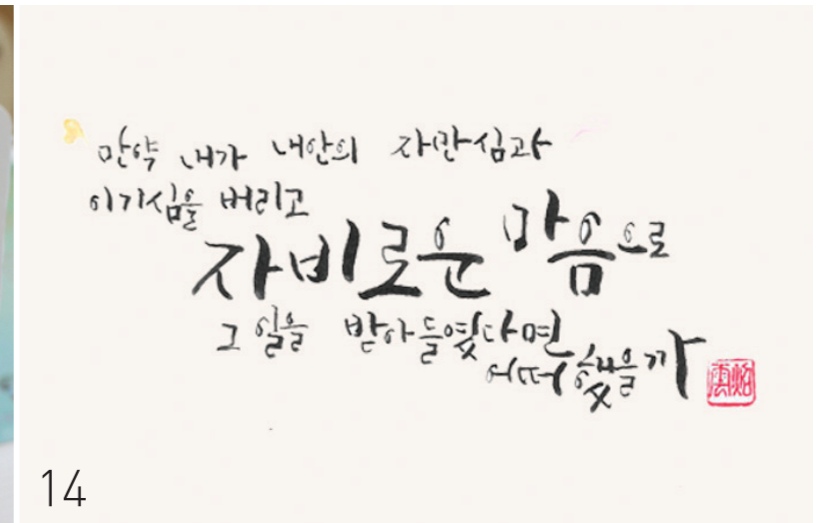 만약 내가 내안의 자만심과
이기심을 버리고
자비로운 마음으로
그 일을 받아들였다면
어떠했을까
14